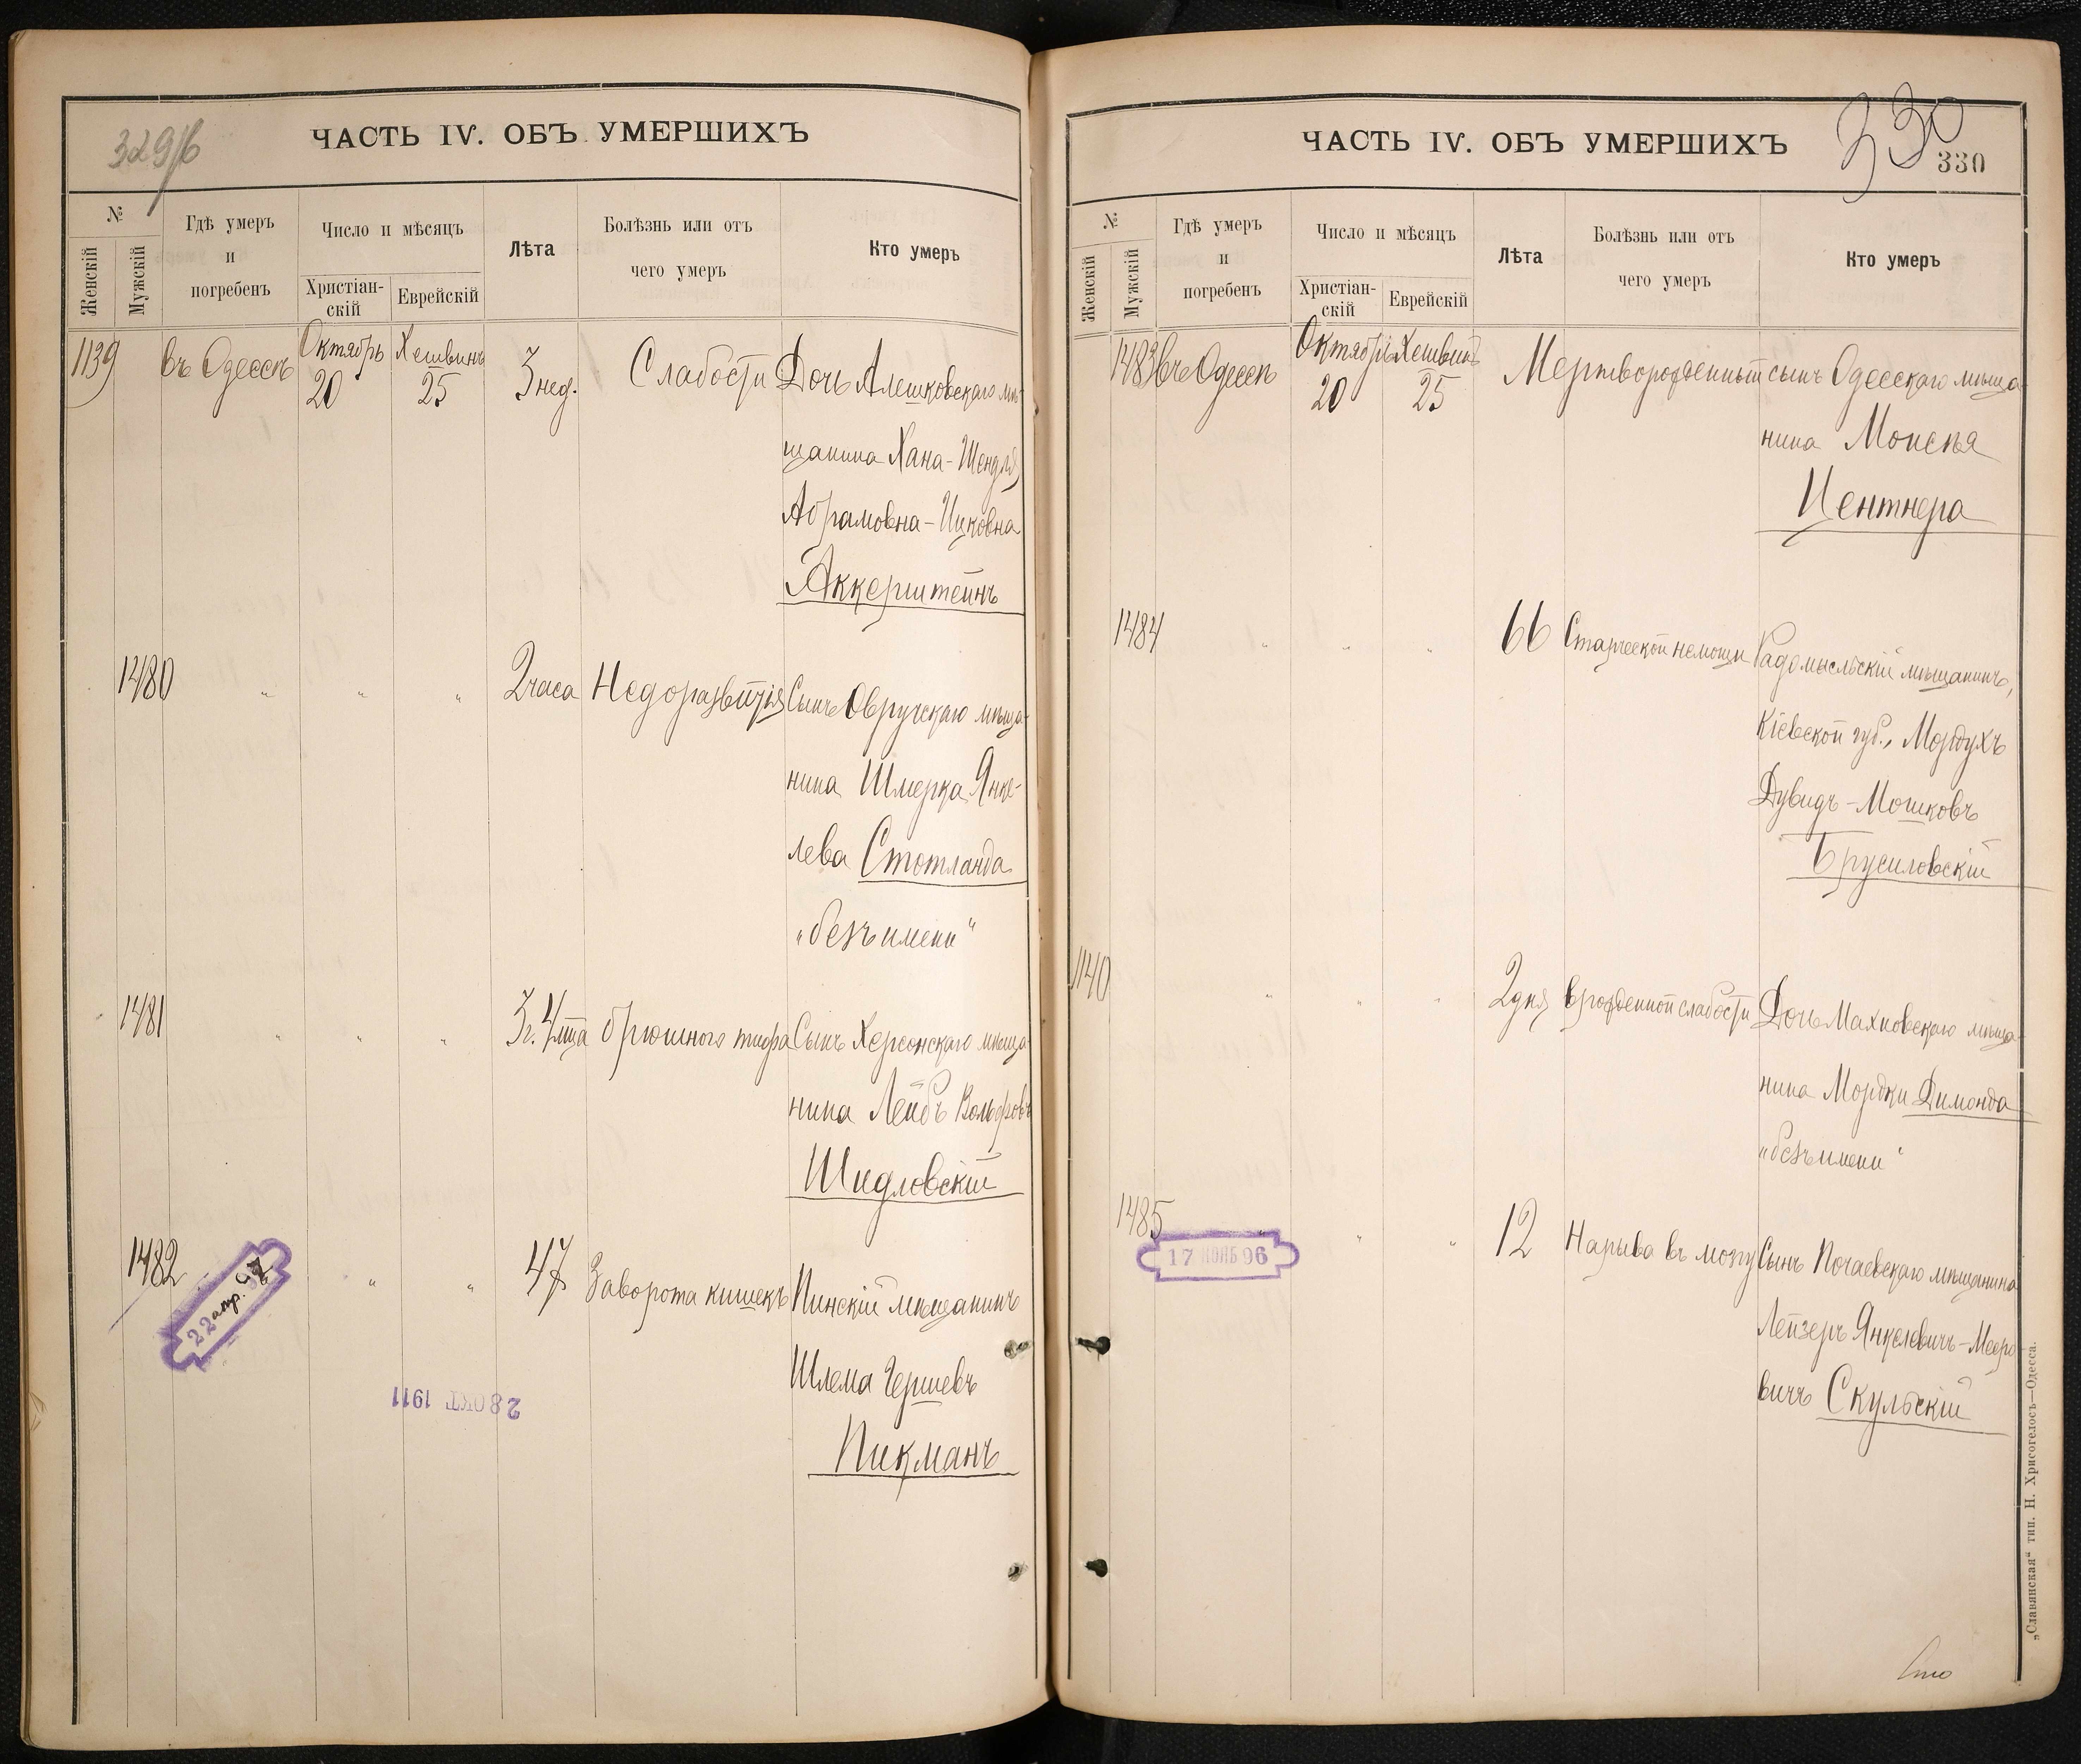 329/б
ЧАСТЬ IV. ОБЪ УМЕРШИХЪ
№
Женскій
Мужскій
Гдѣ умеръ
и
погребенъ
Число и мѣсяцъ
Христіан-
скій
Еврейскій
Лѣта
Болѣзнь или отъ
чего умеръ
Кто умеръ
1139 въ Одессѣ Октябрь 20 Хешвинъ 25 3 нед. Слабости Дочь Алешковскаго мѣ-
щанина Хана-Шендля
Абрамовна-Ицковна
Аккерштейнъ
1480 " " " 2 часа Недоразвитія Сынъ Овручскаго мѣща-
нина Шмерка Янке-
лева Стотланда
"безъ имени"
1481 " " " 3 г. 4 мца брюшного тифа Сынъ Херсонскаго мѣща-
нина Лейбъ Вольфовъ
Шидловскій
1482 " " 47 Заворота кишекъ Пинскій мѣщанинъ
22 апр. 97
Шлема Гершевъ
28 ОКТ 1911
Пикманъ
330
ЧАСТЬ IV. ОБЪ УМЕРШИХЪ
330
№
Женскій
Мужскій
Гдѣ умеръ
и
погребенъ
Число и мѣсяцъ
Христіан-
скій
Еврейскій
Лѣта
Болѣзнь или отъ
чего умеръ
Кто умеръ
1483 въ Одессѣ Октябрь 20 Хешвинъ 25 Мертворожденный сынъ Одесскаго мѣща-
нина Моисея
Центнера
1484 " " " 66 Старческой немощи Радомысльскій мѣщанинъ,
Кіевской губ., Мордухъ
Дувидъ-Мошковъ
Брусиловскій
1140 " " " 2 дня врожденной слабости Дочь Махновскаго мѣща-
нина Мордки Димонда
"безъ имени"
1485 " " " 12 Нарыва въ мозгу Сынъ Почаевскаго мѣщанина
17 НОЯБ 96
Лейзеръ Янкелевичъ-Мееро-
вичъ Скульскій
„Славянская“ тип. Н. Хрисогелосъ—Одесса.